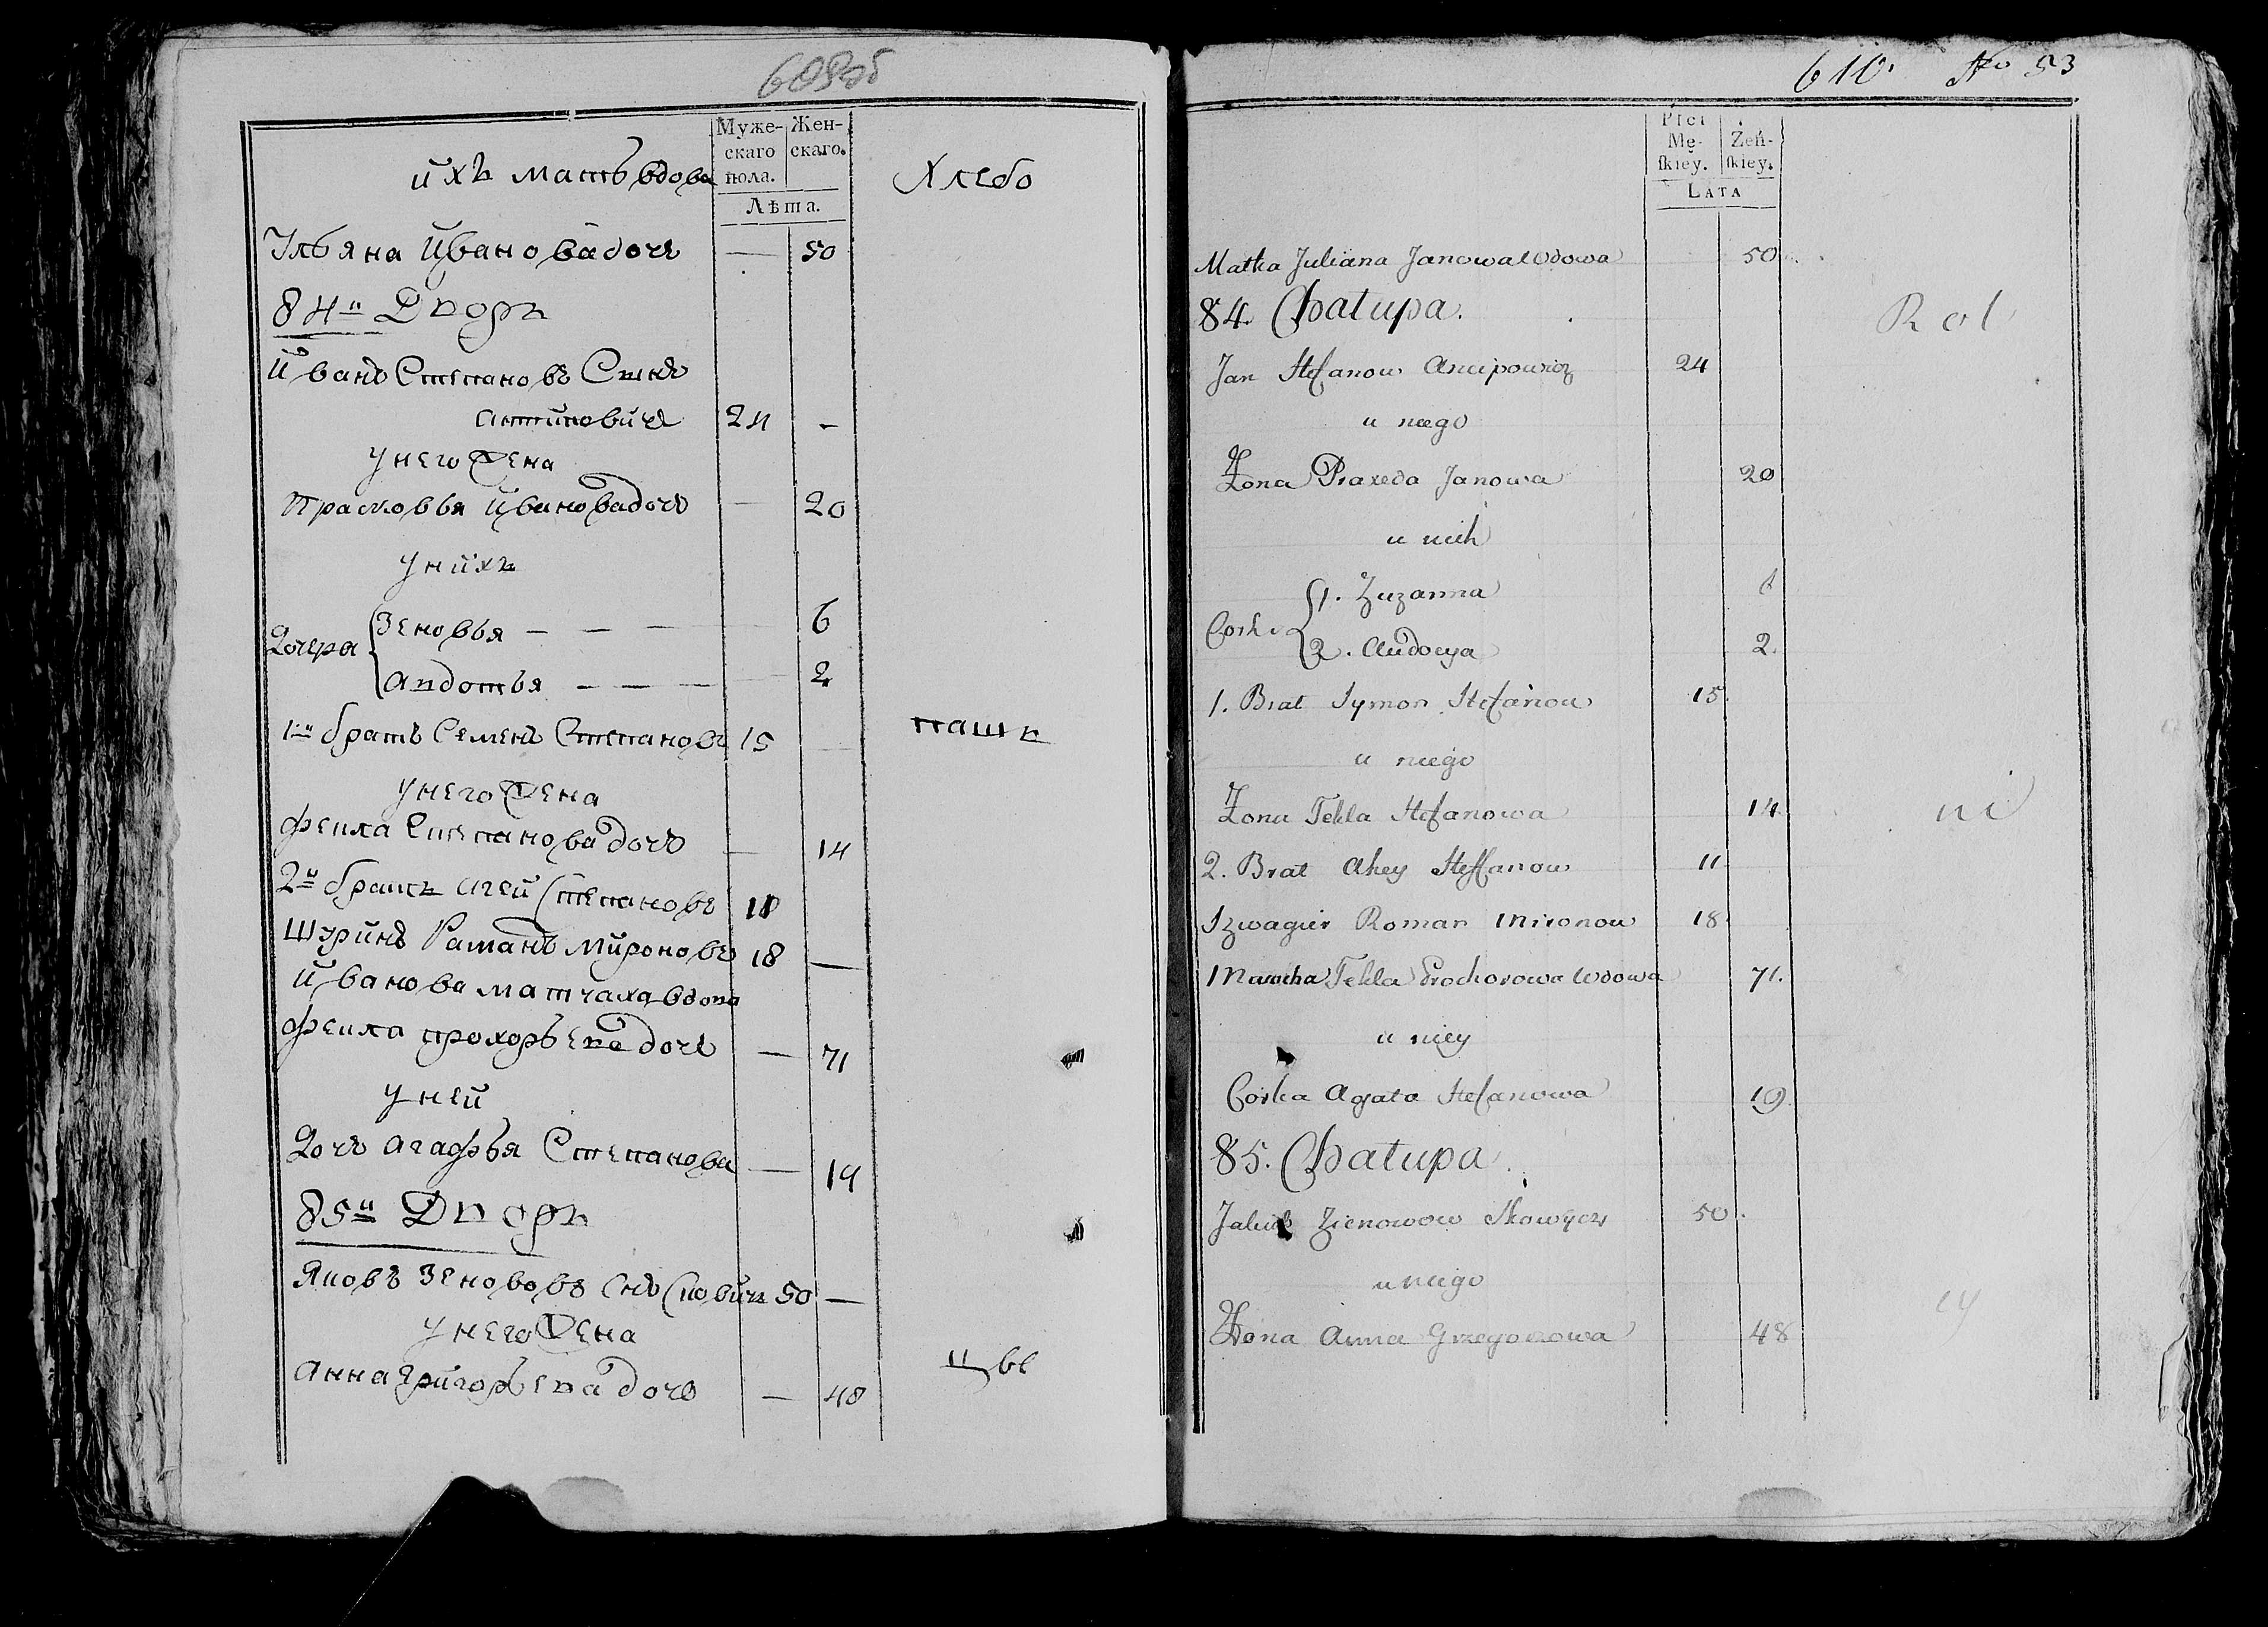 609об
Муже-
скаго
пола.
Жен-
скаго.
Лѣта.
ихъ мать вдова
Хлебо
Ульяна Иванова дочь — 50
84й Дворъ
Иванъ Степановъ Сынъ
Антиповичъ 24 —
У него Жена
Прасковья Иванова дочь — 20
У нихъ
Дочери
Зеновья — — — 6
Авдотья — — — 2
1й братъ Семенъ Степановъ 15 —
паш
У него Жена
Фекла Степанова дочь — 14
2й братъ Агей Степановъ 11
Шуринъ Раманъ Мироновъ 18 —
Иванова матчаха вдова
Фекла Прохорьева дочь — 71
У ней
Дочь Агафья Степанова — 19
85й Дворъ
Яковъ Зенововъ Снъ 50 —
У него Жена
Анна Григорьева дочь — 48
цы
610. No 53
Płci
Mę-
ſkiey.
Żeń-
ſkiey.
Lata
Matka Juliana Janowa Wdowa 50
84. Chałupa.
Rol
Jan Stefanow Ancipowicz 24
u niego
Żona Praxeda Janowa 20
u nich
Corki
1. Zuzanna 6
2. Audocya 2.
1. Brat Symon Stefanow 15
u niego
Żona Tekla Stefanowa 14
ni
2. Brat Ahey Steffanow 11
Szwagier Roman Mironow 18
Macocha Tekla Prochorowa Wdowa 71.
u niey
Corka Agata Stefanowa 19
85. Chałupa.
Jakub Zienowow 50.
u niego
cy
Żona Anna Grzegorzowa 48